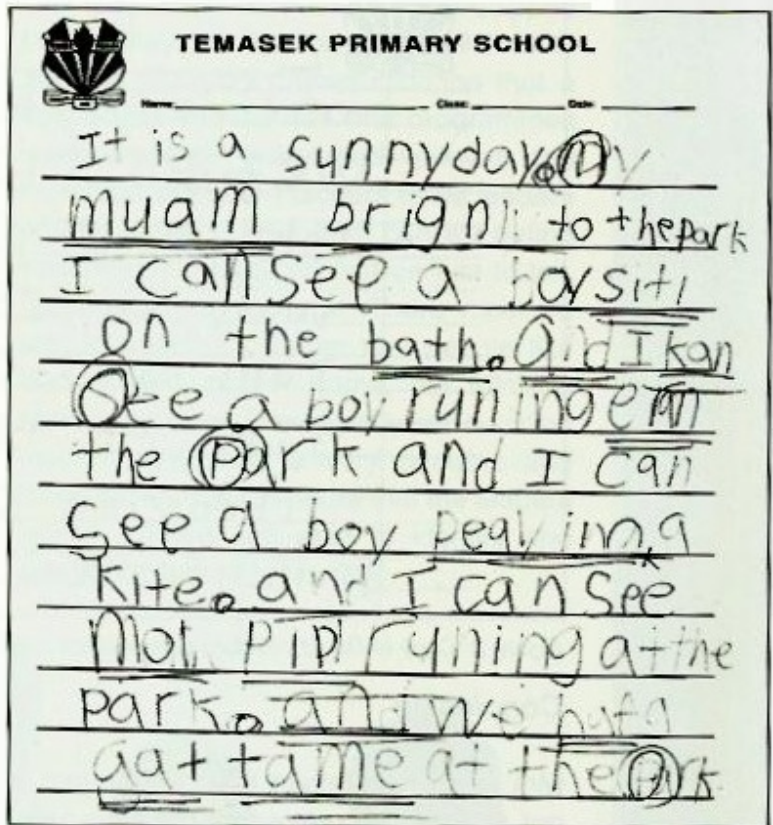 TEMASEK PRIMARY SCHOOL
Name: Class: Date:
It is a sunnyday. My
muam brign to thepark
I can see a boy siti
on the bath. and I kan
See a boy runing enn
the Park and I can
See a boy peay im a
kite. and I can See
mot pipl runing at the
park. and we hafa
gat tame at the Park